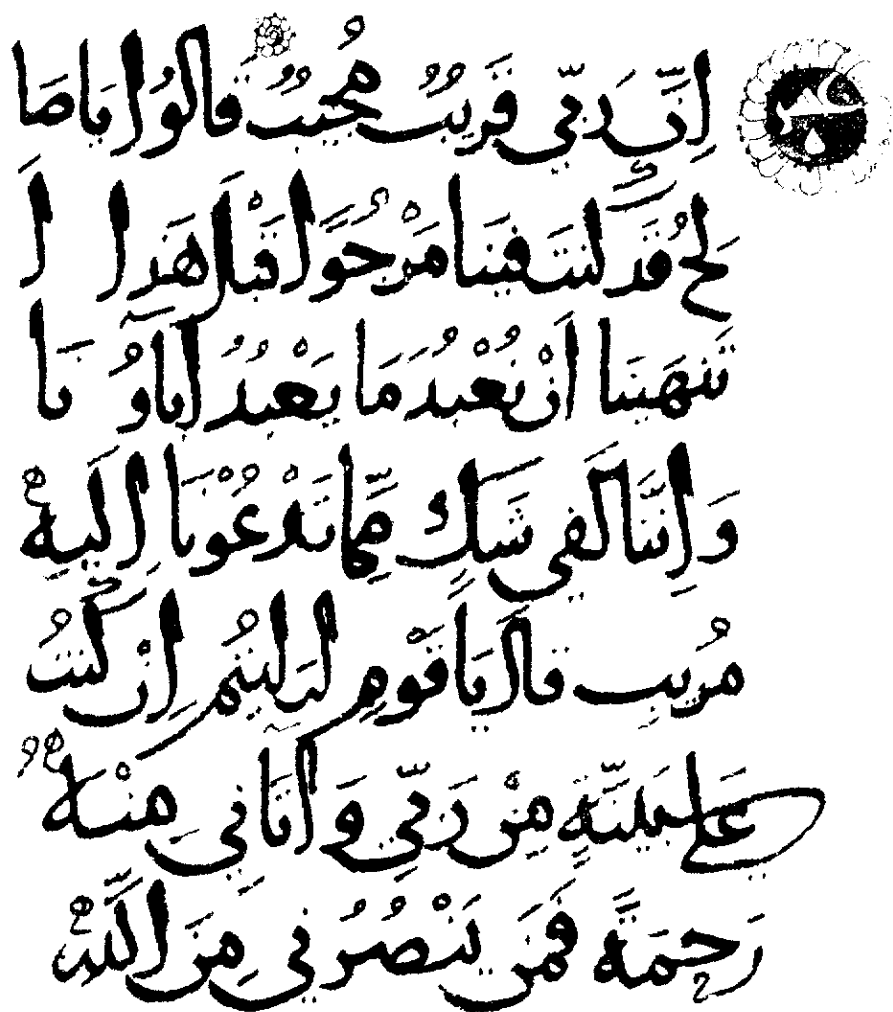 إِنَّ رَبِّي قَرِيبٌ مُجِيبٌ قَالُوا يَا صَا
لِحُ قَدْ كُنْتَ فِينَا مَرْجُوًّا قَبْلَ هَذَا أَ
تَنْهَينَا أَنْ نَعْبُدَ مَا يَعْبُدُ آبَاؤُنَا
وَإِنَّنَا لَفِي شَكٍّ مِمَّا تَدْعُونَا إِلَيْهِ
مُرِيبٍ قَالَ يَا قَوْمِ أَرَأَيْتُمْ إِنْ كُنْتُ
عَلَى بَيِّنَةٍ مِنْ رَبِّي وَآتَانِي مِنْهُ
رَحْمَةً فَمَنْ يَنْصُرُنِي مِنَ اللَّهِ